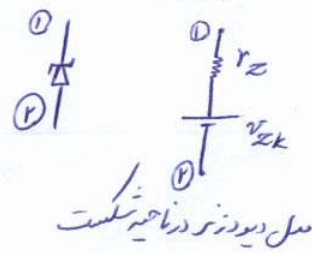 ① ①
r_z
② V_ZK
②
مدل دیود زنر در ناحیه شکست